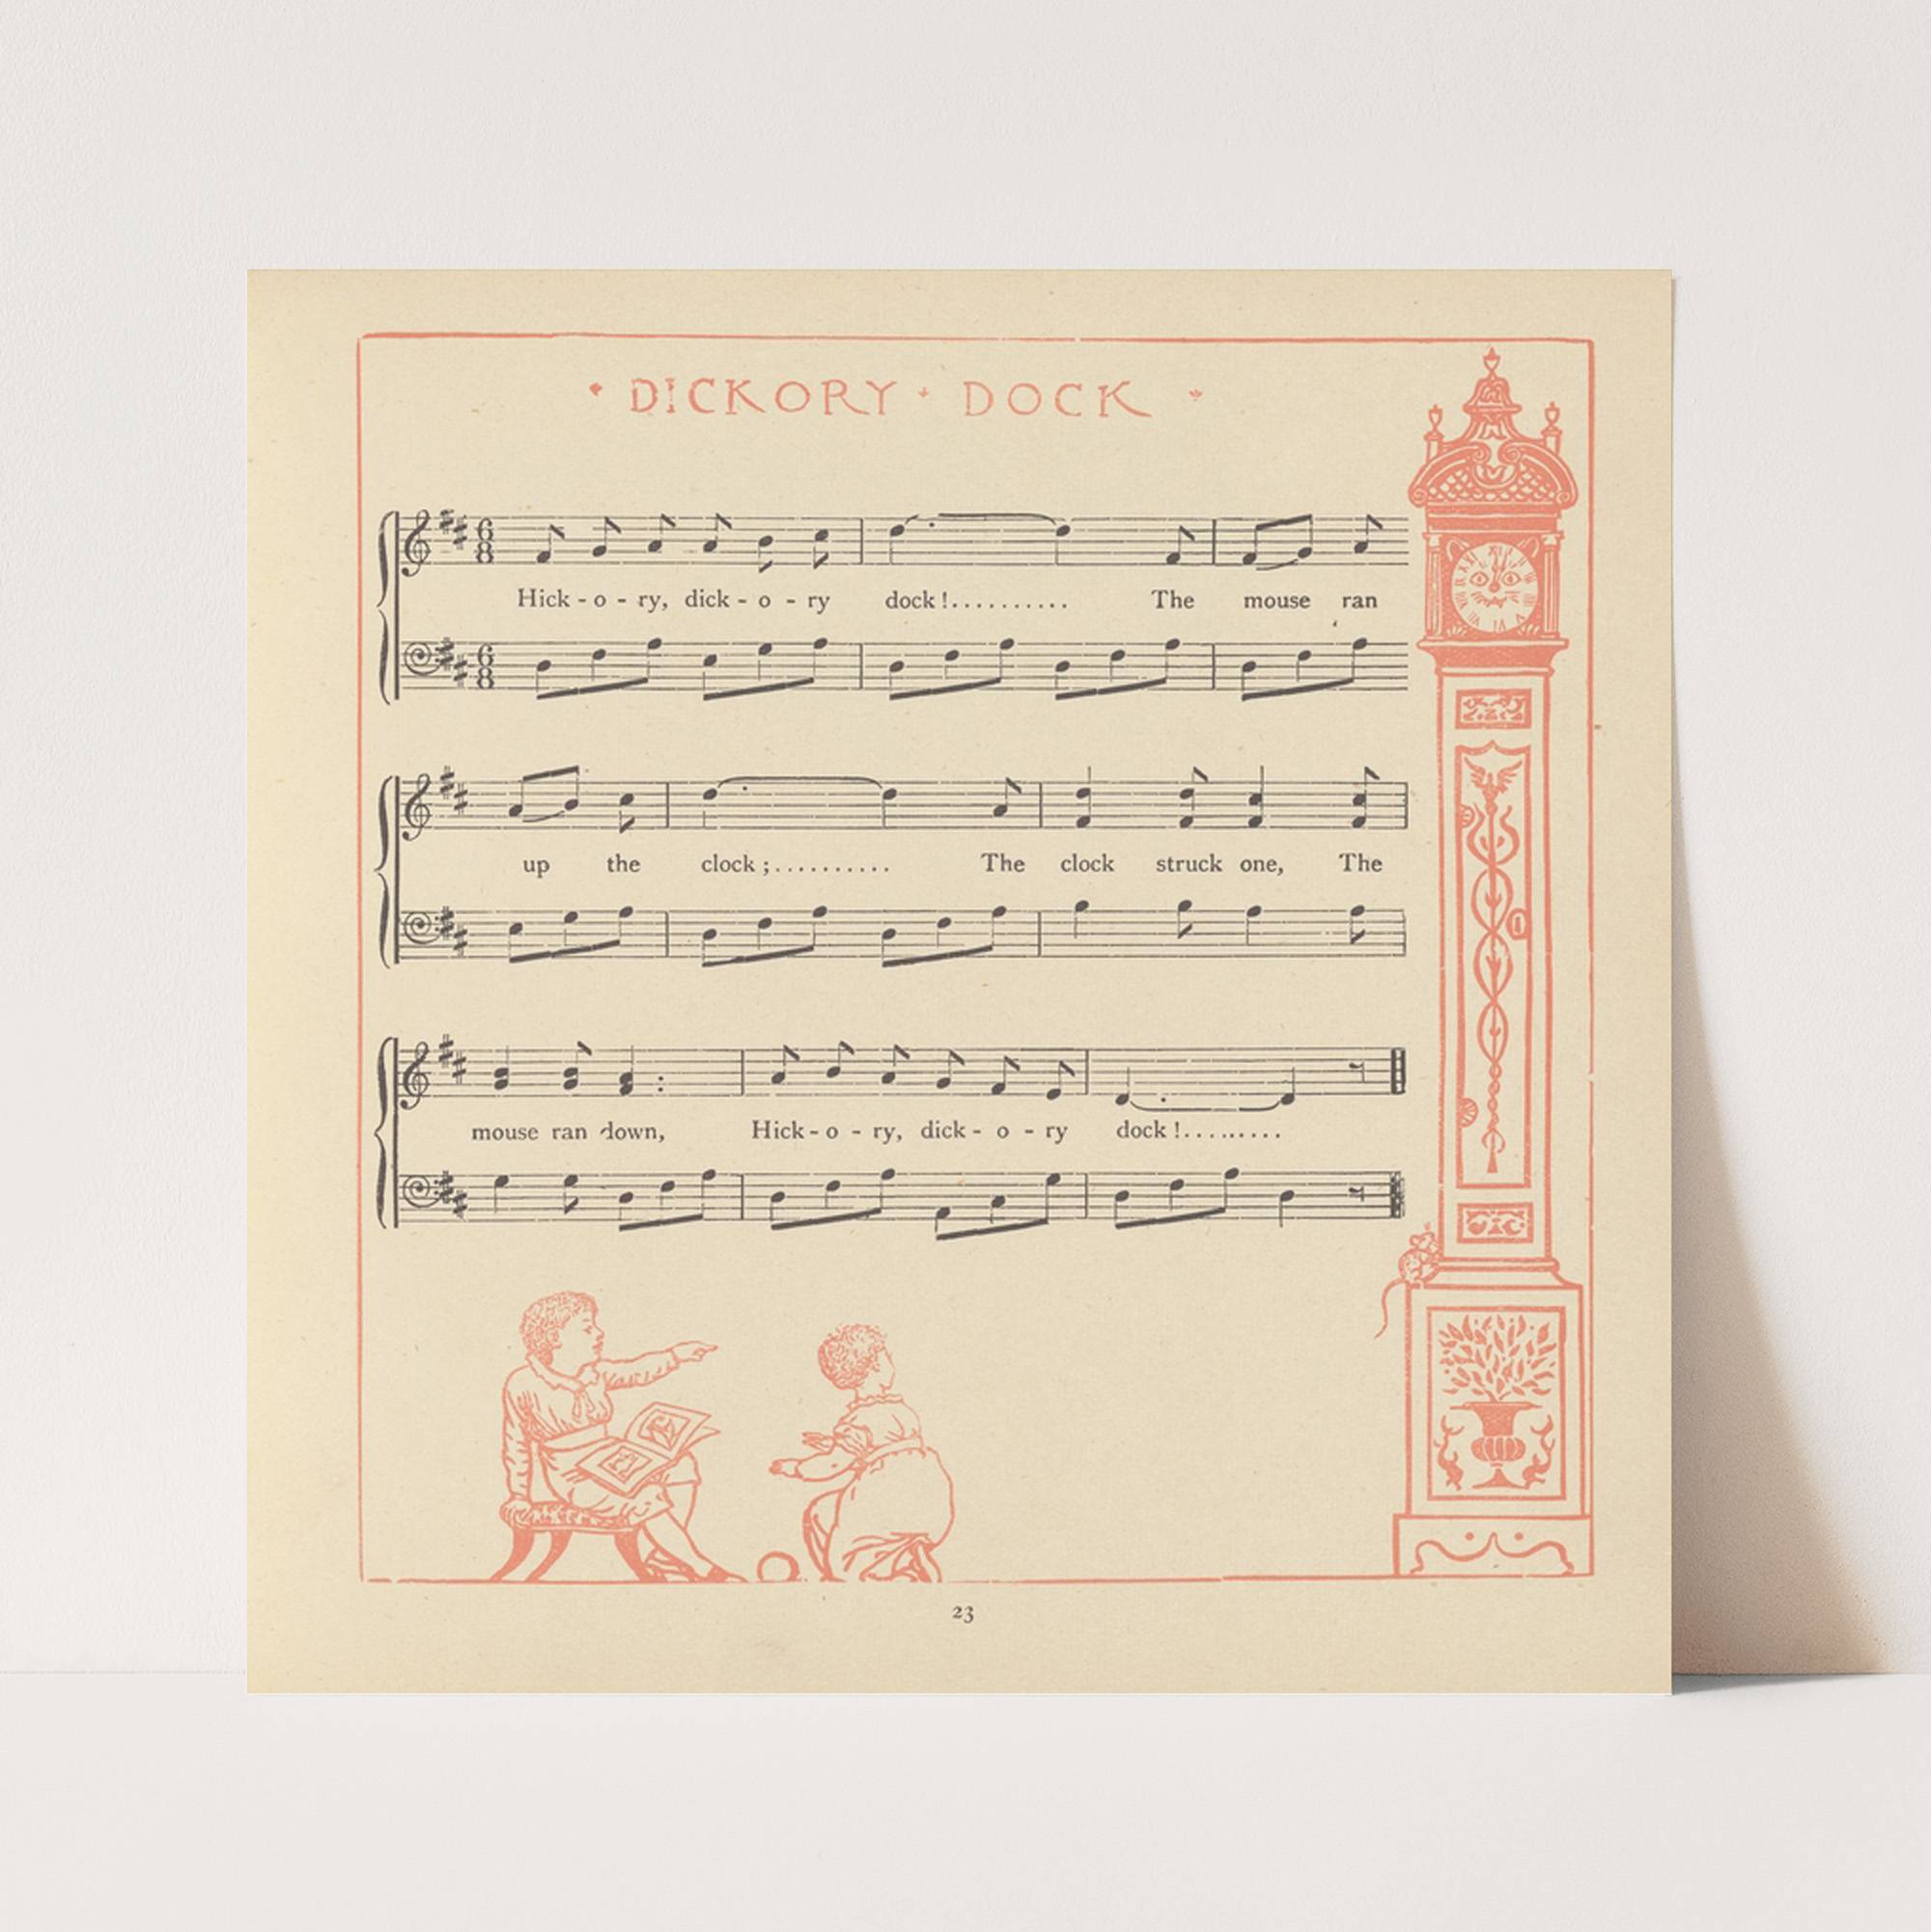 DICKORY DOCK
Hick - o - ry, dick - o - ry dock !.......... The mouse ran
up the clock ;.......... The clock struck one, The
mouse ran down, Hick - o - ry, dick - o - ry dock !.........
23